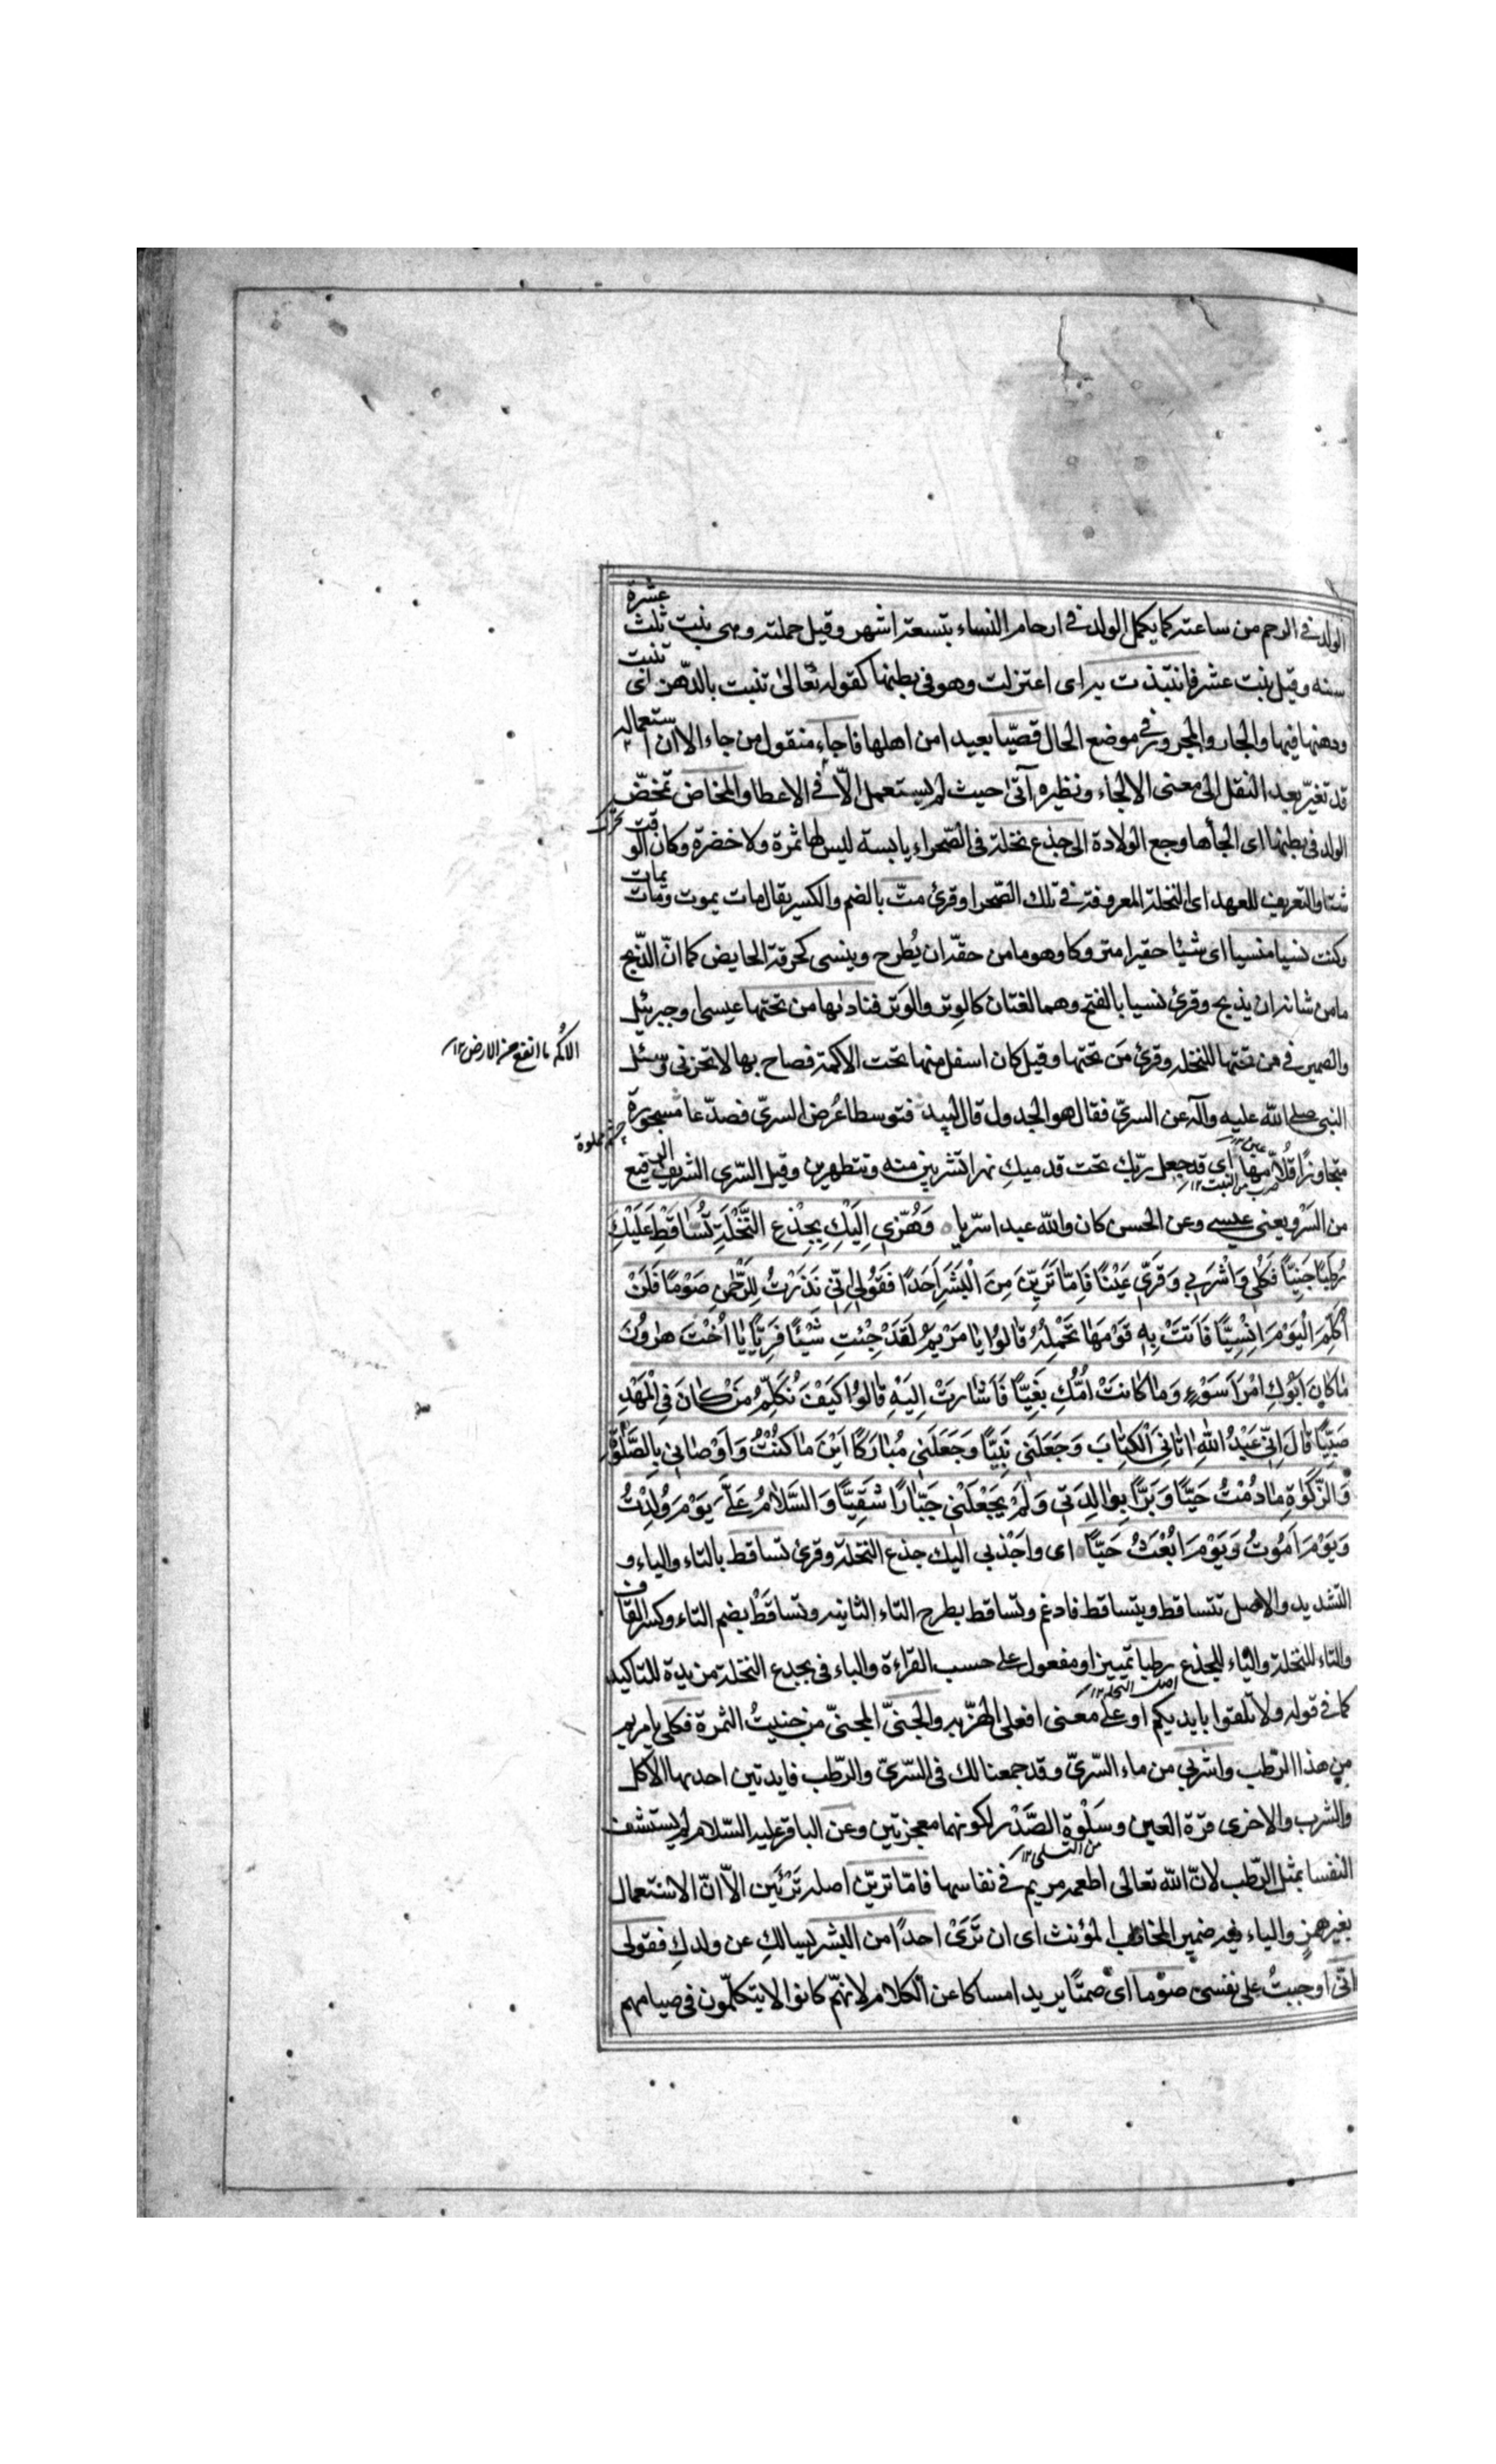 الولد في الرحم من ساعته كما يكمل الولد في ارحام النساء بتسعة اشهر وقيل حملته وهي بنت ثلث عشرة
سنه وقيل بنت عشر فانتبذت به اى اعتزلت وهو في بطنها كقوله تعالى تنبت بالدّهن اى تنبت
ودهنها فيها والجار والمجرور في موضع الحال قصيّا بعيدا من اهلها فاجاء منقول من جاء الا ان استعماله
قد تغيّر بعد النقل الى معنى الالجاء ونظيره آتى حيث لم يستعمل الّا في الاعطا والمخاض تمخّض
الولد في بطنها اى الجأها وجع الولادة الى جذع نخلة في الصّحراء يابسة ليس لها ثمرة ولا خضرة وكان الوقت
شتا والتعريف للعهد اى النخلة المعروفة في تلك الصّحرا وقرئ متّ بالضم والكسر يقال مات يموت ومات يمات
وكنت نسيا منسيا اى شيئا حقيرا متروكا وهو ما من حقّه ان يُطرح وينسى كخرقة الحايض كما انّ الذّبح
ما من شانه ان يذبح وقرئ نسيا بالفتح وهما لغتان كالوِتر والوَتر فناديها من تحتها عيسى او جبرئيل
والضمير في من تحتها للنخله وقرئ مَن تحتها وقيل كان اسفل منها تحت الاكمة فصاح بها لا تحزني وسئل
الاكم ما ارتفع من الارض ١٢
النبي صلى الله عليه وآله عن السريّ فقال هو الجدول قال لبيد فتوسطا عُرض السريّ فصدّعا مسجورة
متجاوزًا قُلّامها اى قد جعل ربّك تحت قدميكِ نهرا تشربين منه وتتطهرين وقيل السّرى الشريف الرفيع
من السَرْو يعني عيسى وعن الحسن كان والله عبدا سرّيا وَهُزّي اِلَيْكِ بِجِذْعِ النَّخْلَةِ تُسَاقِطْ عَلَيْكِ
رُطَبًا جَنِيًّا فَكُلِي وَاشْرَبِي وَقَرِّي عَيْنًا فَاِمّا تَرَيِنَّ مِنَ الْبَشَرِ اَحَدًا فَقُولِي اِنّي نَذَرْتُ لِلرَّحْمٰنِ صَوْمًا فَلَنْ
اُكَلِّمَ الْيَوْمَ اِنْسِيًّا فَاَتَتْ بِهِ قَوْمَهَا تَحْمِلُهُ قَالُوا يَا مَرْيَمُ لَقَدْ جِئْتِ شَيْئًا فَرِيًّا يَا اُخْتَ هٰرُونَ
مَا كَانَ اَبُوكِ امْرَأَ سَوْءٍ وَمَا كَانَتْ اُمُّكِ بَغِيًّا فَاَشَارَتْ اِلَيْهِ قَالُوا كَيْفَ نُكَلِّمُ مَنْ كَانَ فِي الْمَهْدِ
صَبِيًّا قَالَ اِنّي عَبْدُ اللهِ اٰتَانِيَ الْكِتَابَ وَجَعَلَنِي نَبِيًّا وَجَعَلَنِي مُبَارَكًا اَيْنَ مَا كُنْتُ وَاَوْصَانِي بِالصَّلٰوةِ
وَالزَّكٰوةِ مَا دُمْتُ حَيًّا وَبَرًّا بِوَالِدَتِي وَلَمْ يَجْعَلْنِي جَبَّارًا شَقِيًّا وَالسَّلَامُ عَلَيَّ يَوْمَ وُلِدْتُ
وَيَوْمَ اَمُوتُ وَيَوْمَ اُبْعَثُ حَيًّا اى واجذبي اليك جذع النخلة وقرئ تساقط بالتاء والياء و
التشديد والاصل تتساقط ويتساقط فادغم وتساقط بطرح التاء الثانيه وتساقط بضم التاء وكسر القاف
والتاء للنخلة والياء للجذع رطبا تمييز او مفعول على حسب القراءة والباء في بجذع النخلة مزيدة للتاكيد
كما في قوله ولا تلقوا بايديكم او على معنى افعلي الهزّ به والجنيّ المجنيّ من جنيتُ الثمرة فكلي يا مريم
من هذا الرّطب واشربي من ماء السّريّ وقد جمعنا لك في السّريّ والرّطب فايدتين احديهما الاكل
والشرب والاخرى قرّة العين وسَلْوة الصَّدْر لكونهما معجزتين وعن الباقر عليه السّلام لم يستشف
النفسا بمثل الرّطب لانّ الله تعالى اطعمه مريم في نفاسها فامّا تريّن اصله تَرْئَيِن الاّ انّ الاستعمال
بغير همز والياء فيه ضمير المخاطب المؤنث اى ان تَرَىْ احدًا من البشر يسالكِ عن ولدكِ فقولى
انّى اوجبتُ على نفسي صوما اى صمتًا يريد امساكا عن الكلام لانهّم كانوا لا يتكلّمون في صيامهم